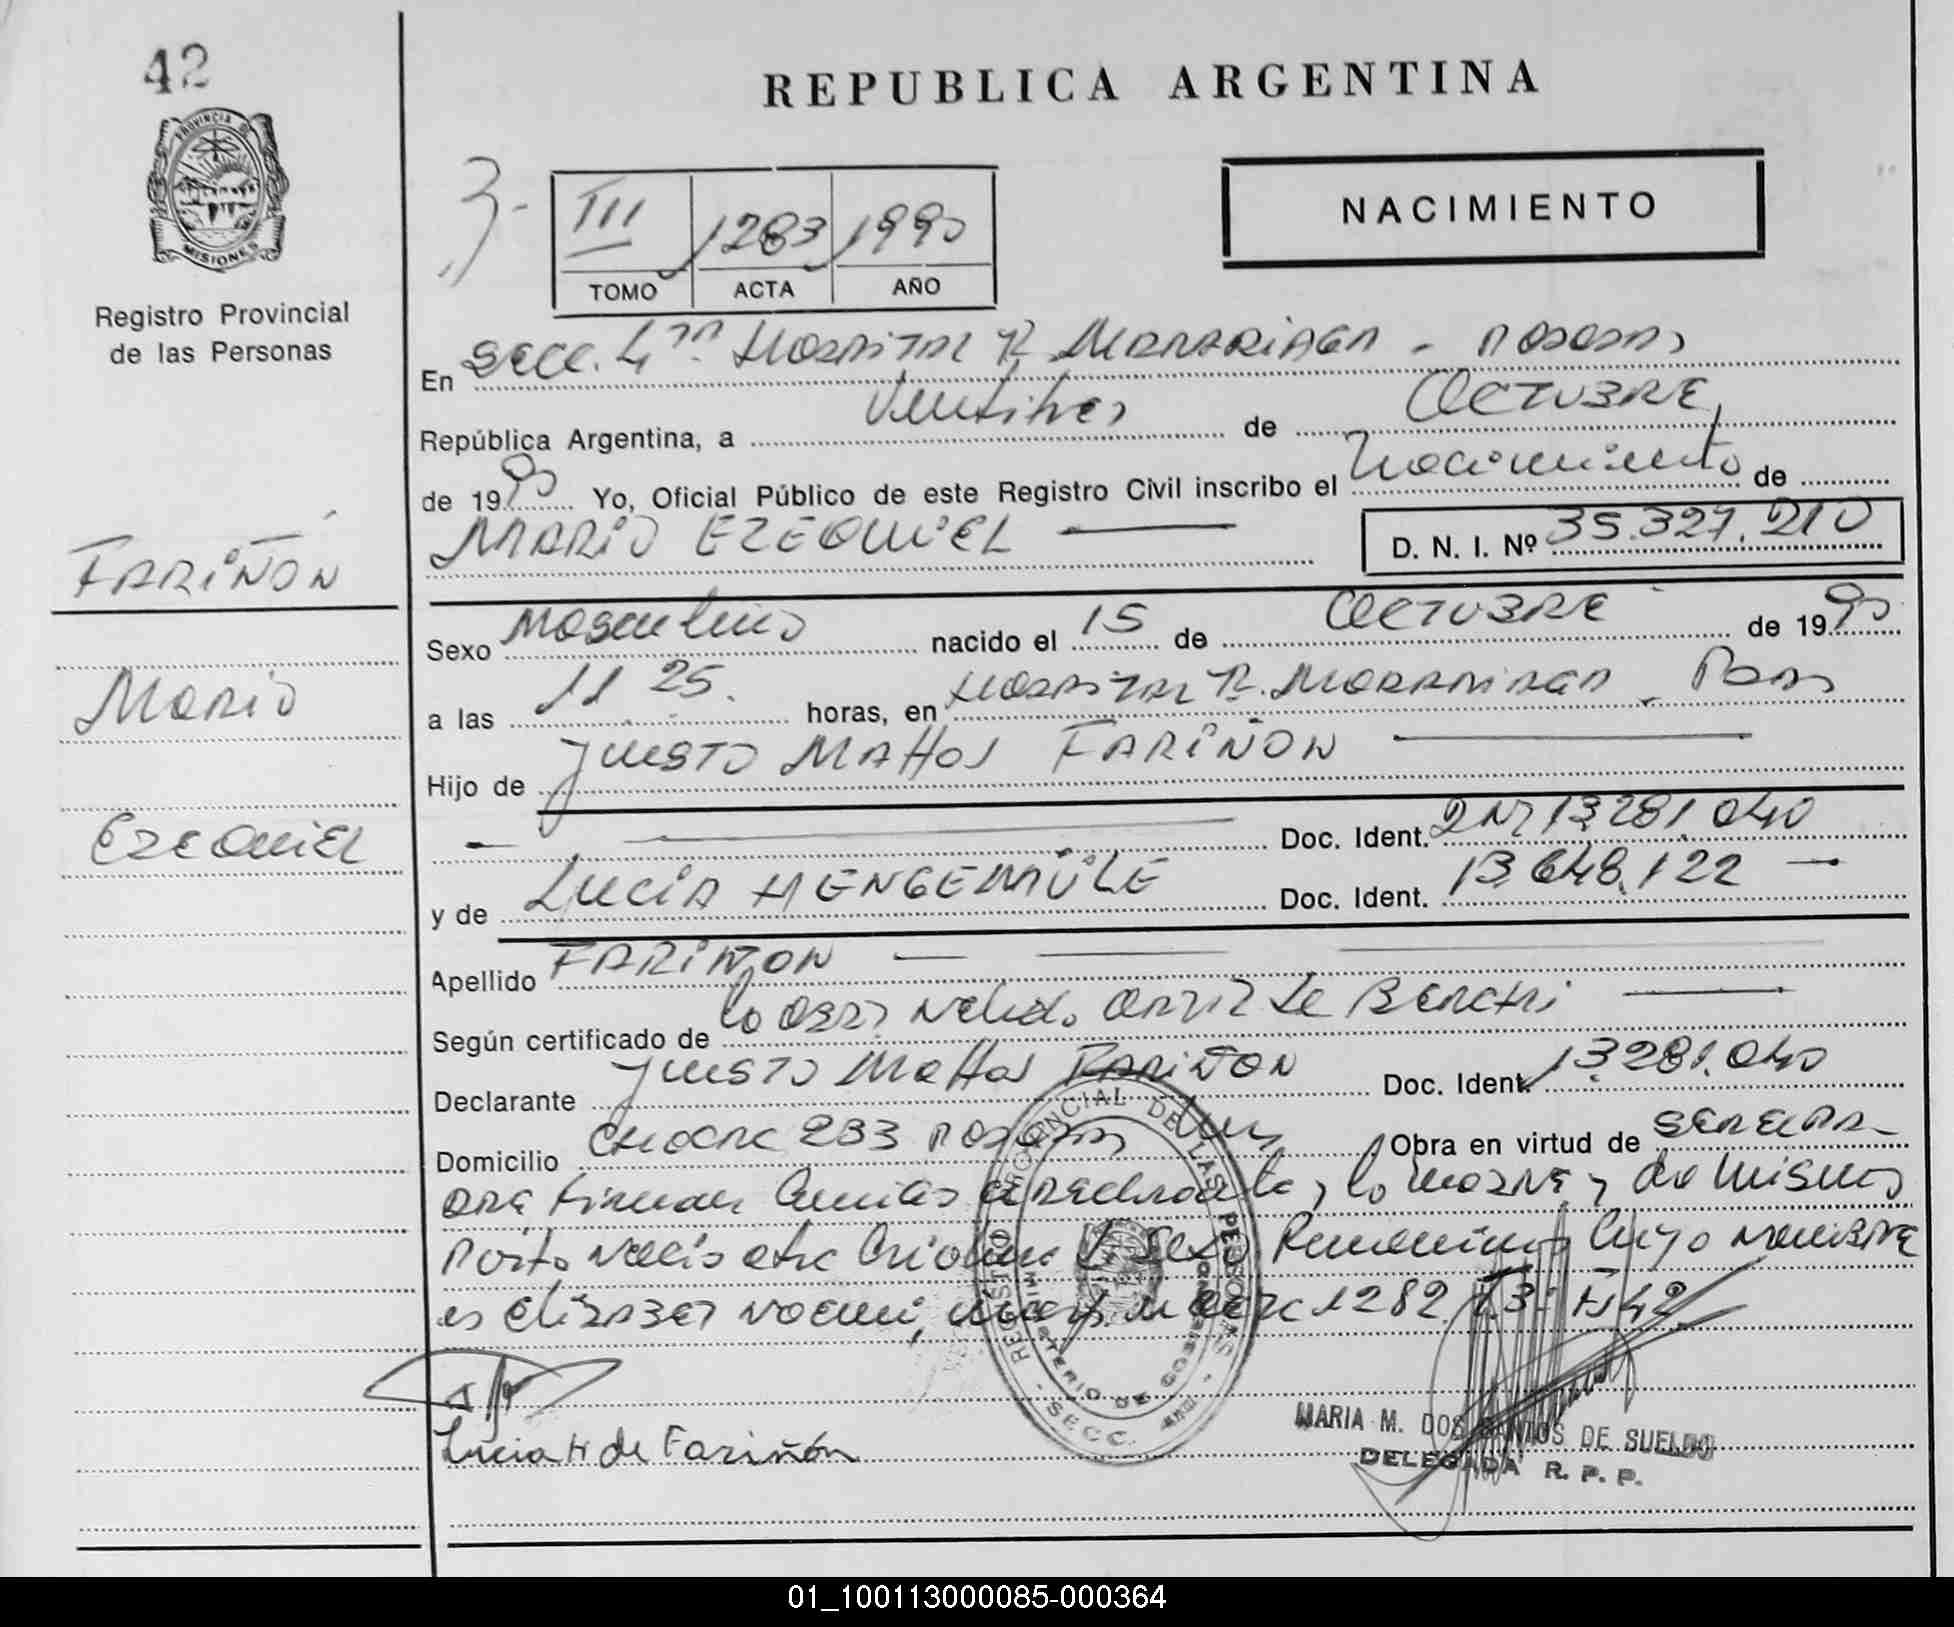 42
REPUBLICA ARGENTINA
PROVINCIA DE
MISIONES
Registro Provincial
de las Personas
3-
III 1283 1990
TOMO ACTA AÑO
NACIMIENTO
En Secc. 4ta Hospital R. Madariaga - Posadas
República Argentina, a Veintitres de OCTUBRE,
de 1990 Yo, Oficial Público de este Registro Civil inscribo el Nacimiento de
MARIO EZEQUIEL D. N. I. Nº 35.327.210
FARIÑON
Mario
EZEQUIEL
Sexo Masculino nacido el 15 de OCTUBRE de 1990
a las 11 25. horas, en Hospital R. Madariaga - Pdas
Hijo de JUSTO MATTOS FARIÑON
Doc. Ident. DNI 13.281.040
y de LUCIA HENGEMÜLE Doc. Ident. 13.648.122
Apellido FARIÑON
Según certificado de la Obst. Nelida
Declarante JUSTO MATTOS FARIÑON Doc. Ident. 13.281.040
Domicilio 283 Posadas Obra en virtud de
firman la madre, del mismo
parto nació otra criatura de sexo Femenino cuyo nombre
es Elizabet Noemi, 1282 T3- F42
REGISTRO PROVINCIAL DE LAS PERSONAS
MINISTERIO DE GOBIERNO
SECC.
Lucia H de Fariñón
MARIA M. DOS SANTOS DE SUELDO
DELEGADA R. P. P.
01_100113000085-000364